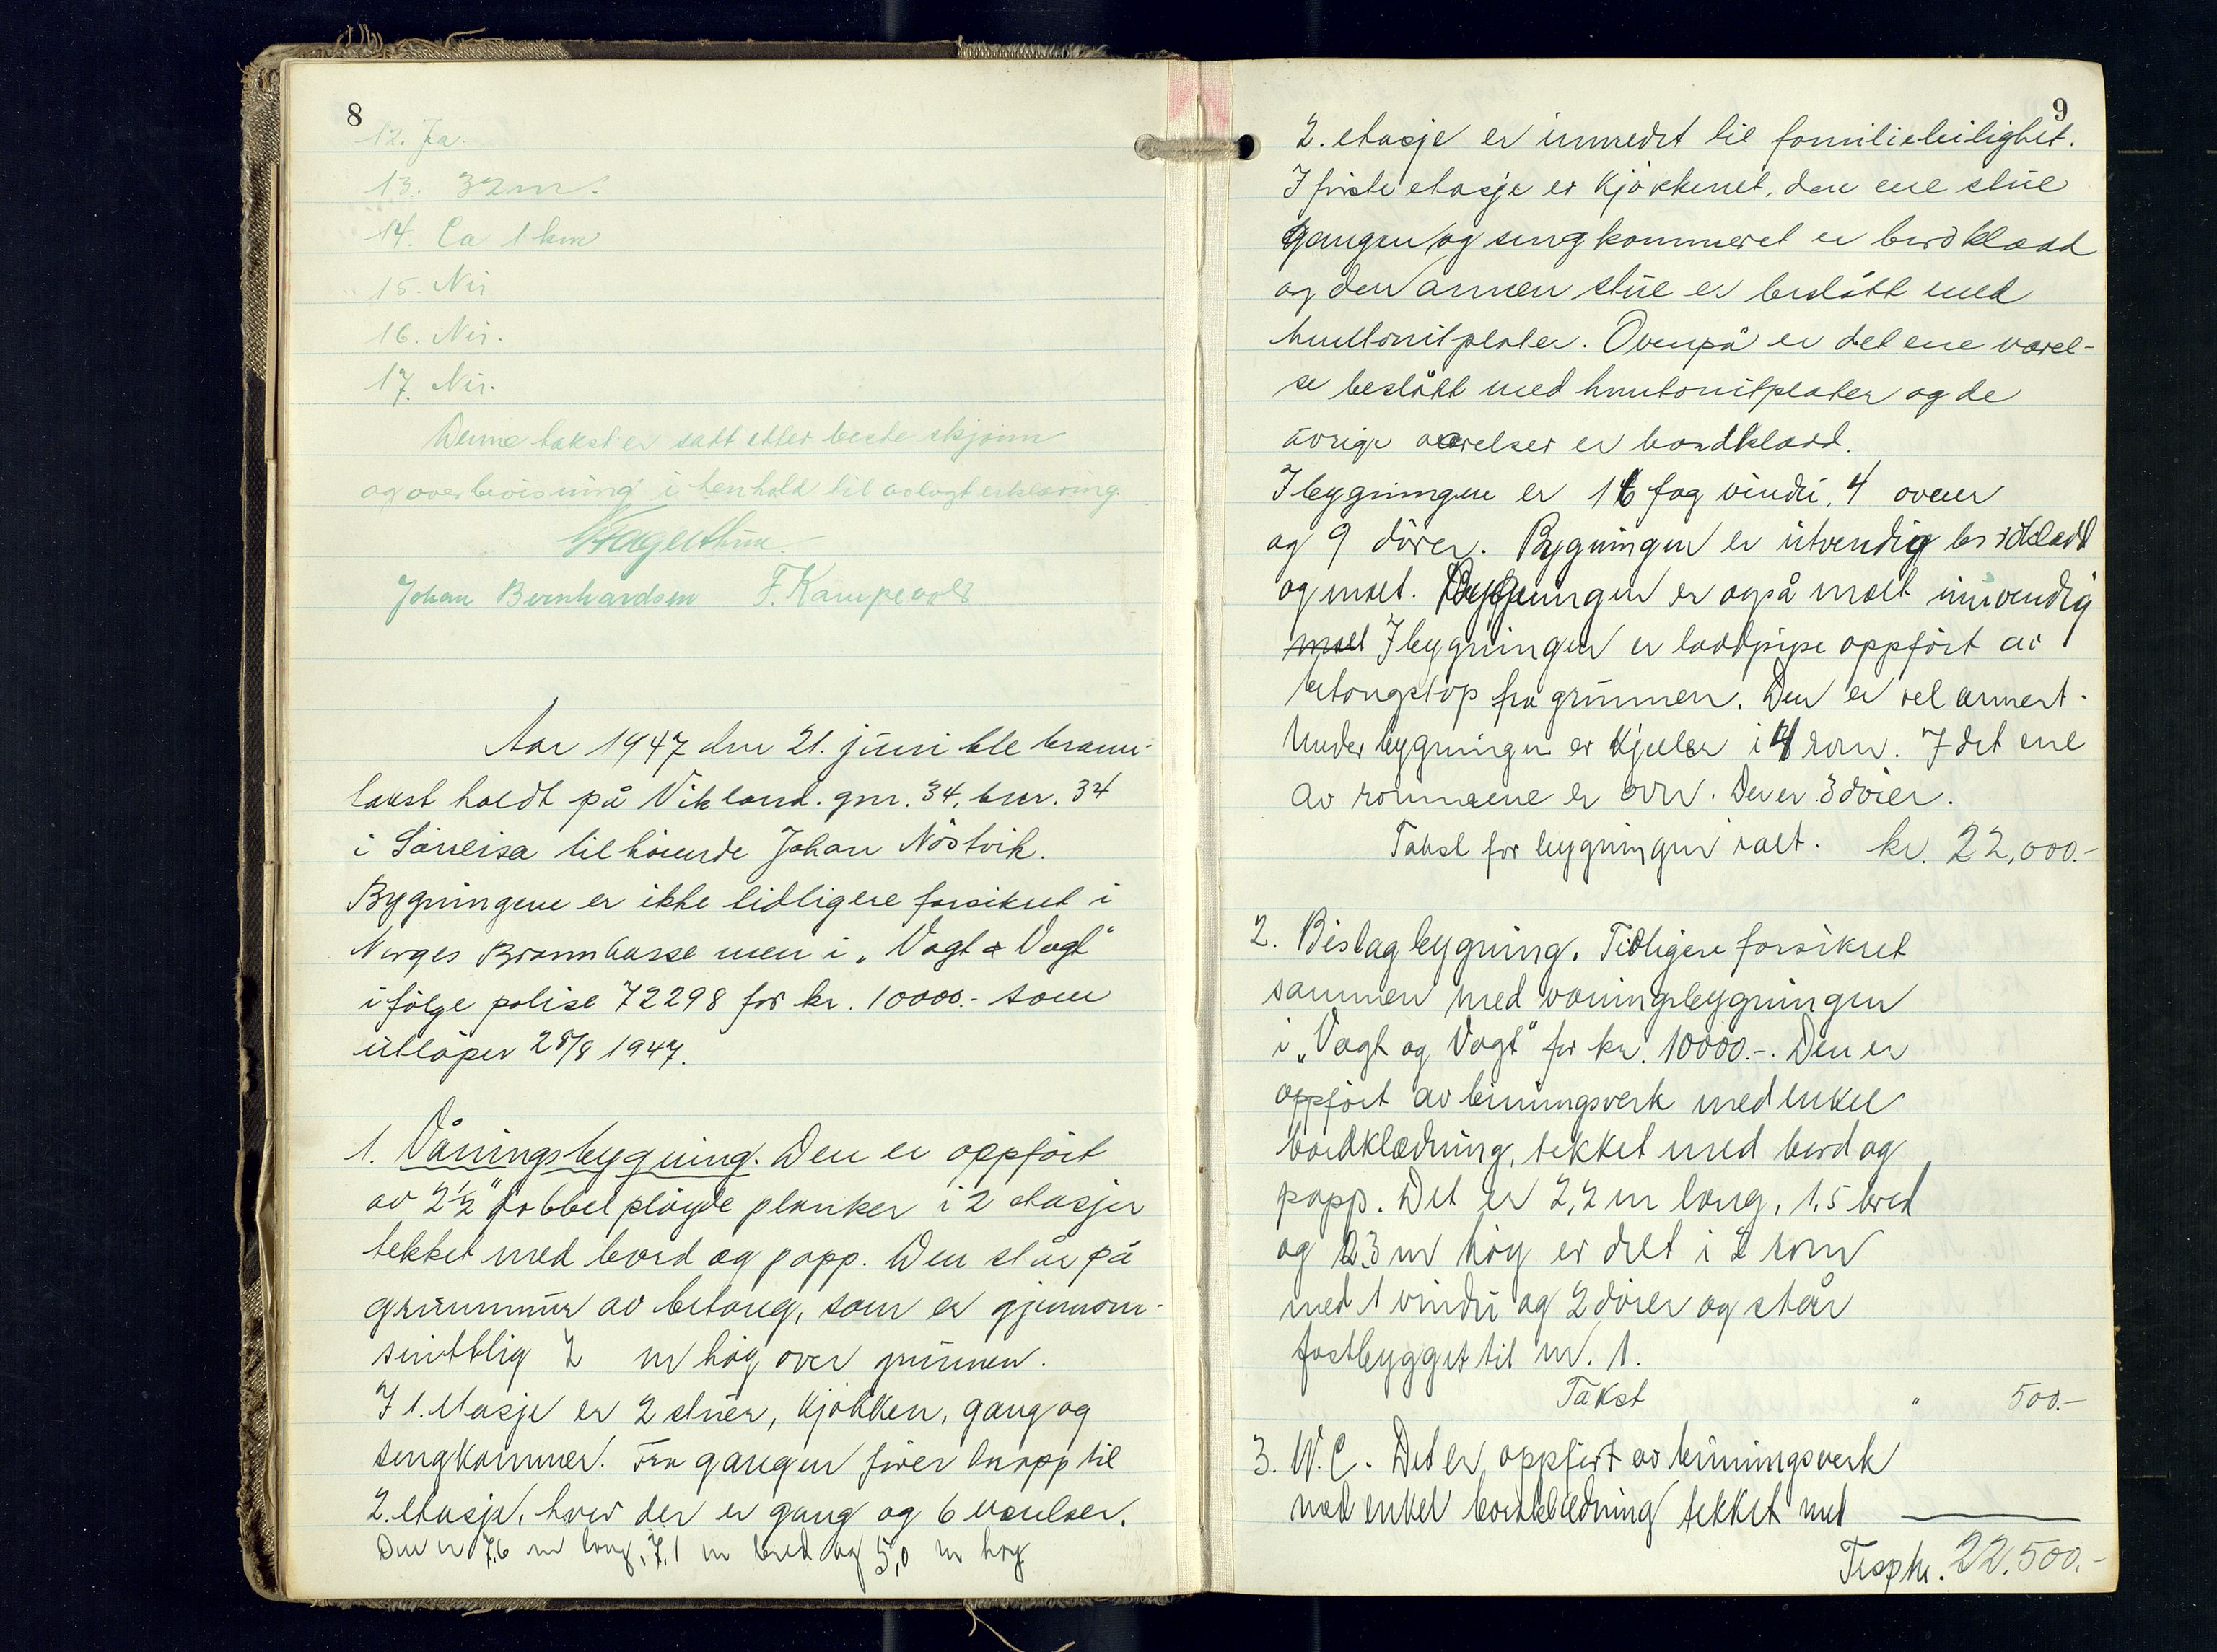 8
12. Ja.
13. 32 m.
14. Ca 1 km
15. Nei
16. Nei.
17. Nei.
Denne takst er satt etter beste skjönn
og overbevisning i henhold til avlagt erklæring.
Johan Bernhardsen F. Kampevoll
Aar 1947 den 21. juni ble brann-
takst holdt på Vikland. gnr. 34, bnr. 34
i Sörreisa tilhörende Johan Nöstvik.
Bygningene er ikke tidligere forsikret i
Norges Brannkasse men i „Vogt & Vogt"
ifölge polise 72298 for kr. 10000.- som
utlöper 28/8 1947.
1. Våningsbygning. Den er oppfört
av 2½" dobbel plöyde planker i 2 etasjer
tekket med bord og papp. Den står på
grunnmur av betong, som er gjennom-
snittlig 2 m höy over grunnen.
I 1. etasje er 2 stuer, kjökken, gang og
sengkammer. Fra gangen förer trapp til
2. etasje, hvor der er gang og 6 værelser.
Den er 7,6 m lang, 7,1 m bred og 5,0 m höy
9
2. etasje er innredet til familieleilighet.
I förste etasje er kjökkenet, den ene stue
gangen og sengkammeret er bordkledd
og den annen stue er beslått med
huntonitplater. Ovenpå er det ene værel-
se beslått med huntonitplater og de
övrige værelser er bordkledd.
I bygningen er 16 fag vindu, 4 ovner
og 9 dörer. Bygningen er utvendig bordkledd
og malt. Bygningen er også malt innvendig
malt I bygningen er loddpipe oppfört av
betongstöp fra grunnen. Den er vel armert.
Under bygningen er kjeller i 4 rom. I det ene
av rommene er ovn. Der er 3 dörer.
Takst for bygningen i alt. kr. 22,000.-
2. Bislagbygning. Tidligere forsikret
sammen med våningsbygningen
i „Vogt og Vogt" for kr. 10000.-. Den er
oppfört av binningsverk med enkel
bordklædning, tekket med bord og
papp. Det er 2,2 m lang, 1,5 bred
og 2.3 m höy er delt i 2 rom
med 1 vindu og 2 dörer og står
fastbygget til nr. 1.
Takst " 500.-
3. W.C. Det er oppfört av binningsverk
med enkel bordklædning tekket med
Trsp kr. 22.500.-